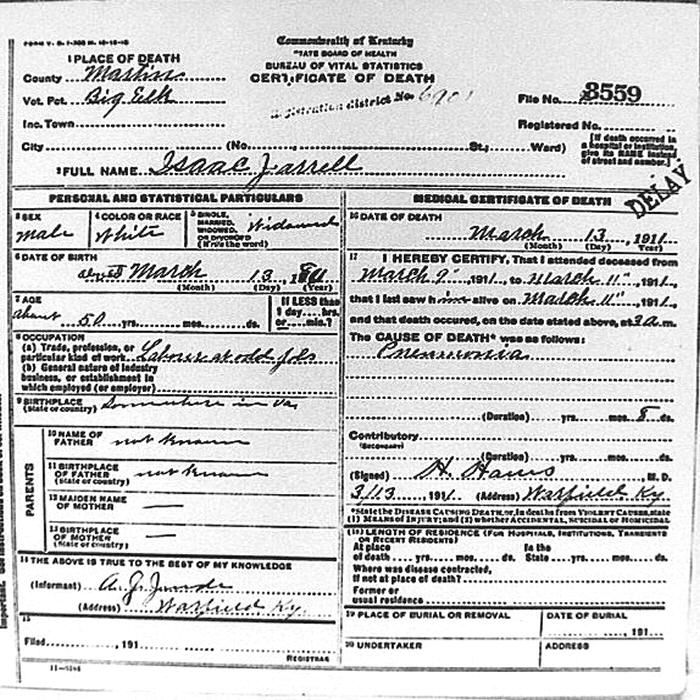 Commonwealth of Kentucky
STATE BOARD OF HEALTH
BUREAU OF VITAL STATISTICS
CERTIFICATE OF DEATH
1 PLACE OF DEATH
County Martin
Vot. Pct. Big Elk
Registration district No. 6901
File No. 8559
Inc. Town
Registered No.
City (No. St.; Ward)
[If death occurred in a hospital or institution, give its NAME instead of street and number.]
2 FULL NAME Isaac Jarrell
DELAY
PERSONAL AND STATISTICAL PARTICULARS
3 SEX
Male
4 COLOR OR RACE
White
5 SINGLE, MARRIED, WIDOWED, OR DIVORCED (Write the word)
Widowed
6 DATE OF BIRTH
March 13, 18
(Month) (Day) (Year)
7 AGE
about 50 yrs. mos. ds.
If LESS than 1 day hrs. or min.?
8 OCCUPATION
(a) Trade, profession, or
particular kind of work Labour at odd jobs
(b) General nature of industry
business, or establishment in
which employed (or employer)
9 BIRTHPLACE
(State or country) Somewhere in Va
PARENTS
10 NAME OF
FATHER not known
11 BIRTHPLACE
OF FATHER not known
(State or country)
12 MAIDEN NAME
OF MOTHER —
13 BIRTHPLACE
OF MOTHER —
(State or country)
14 THE ABOVE IS TRUE TO THE BEST OF MY KNOWLEDGE
(Informant) A. J.
(Address) Warfield Ky.
15
Filed , 191
REGISTRAR
MEDICAL CERTIFICATE OF DEATH
16 DATE OF DEATH
March 13, 1911
(Month) (Day) (Year)
17 I HEREBY CERTIFY, That I attended deceased from
March 9", 1911, to March 11", 1911,
that I last saw him alive on March 11", 1911,
and that death occured, on the date stated above, at 3 a m.
The CAUSE OF DEATH* was as follows:
Pneumonia
(Duration) yrs. mos. 8 ds.
Contributory
(Secondary)
(Duration) yrs. mos. ds.
(Signed) H. , M. D.
3/13, 1911 (Address) Warfield Ky.
*State the DISEASE CAUSING DEATH, or, in deaths from VIOLENT CAUSES, state
(1) MEANS OF INJURY; and (2) whether ACCIDENTAL, SUICIDAL or HOMICIDAL
(18) LENGTH OF RESIDENCE (FOR HOSPITALS, INSTITUTIONS, TRANSIENTS
OR RECENT RESIDENTS)
At place In the
of death yrs. mos. ds. State yrs. mos. ds.
Where was disease contracted,
if not at place of death?
Former or
usual residence
19 PLACE OF BURIAL OR REMOVAL
DATE OF BURIAL
, 191
20 UNDERTAKER
ADDRESS